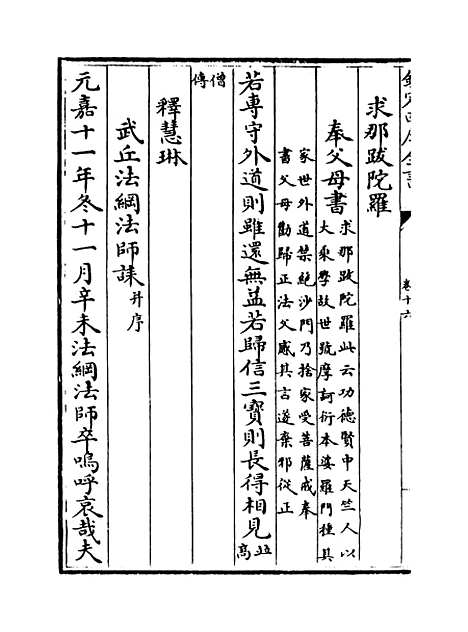 欽定四庫全書
卷十六
求那跋陀羅
奉父母書
求那跋陀羅此云功德賢中天竺人以
大乘學故世號摩訶衍本婆羅門種其
家世外道禁絕沙門乃捨家受菩薩戒奉
書父母勸歸正法父感其古遂棄邪從正
若專守外道則雖還無益若歸信三寶則長得相見竝高
僧傳
釋慧琳
武丘法綱法師誄并序
元嘉十一年冬十一月辛未法綱法師卒嗚呼哀哉夫